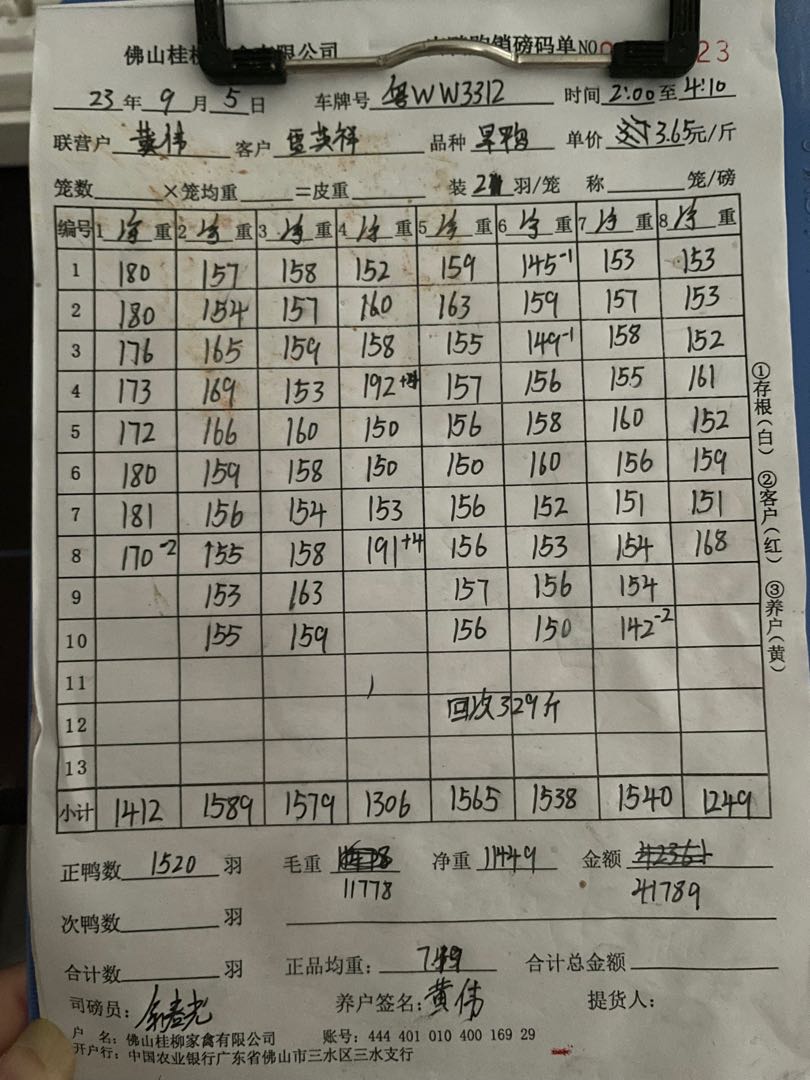 佛山桂柳家禽有限公司 购销磅码单NO 23
23年 9 月 5 日 车牌号 粤WW3312 时间 2:00至4:10
联营户 黄伟 客户 英祥 品种 旱鸭 单价 3.65元/斤
笼数 ×笼均重 =皮重 装 羽/笼 称 笼/磅
编号 1 净 重 2 净 重 3 净 重 4 净 重 5 净 重 6 净 重 7 净 重 8 净 重
1 180 157 158 152 159 145-1 153 153
2 180 154 157 160 163 159 157 153
3 176 165 159 158 155 149-1 158 152
4 173 169 153 192+4 157 156 155 161
5 172 166 160 150 156 158 160 152
6 180 159 158 150 150 160 156 159
7 181 156 154 153 156 152 151 151
8 170-2 155 158 191+4 156 153 154 168
9 153 163 157 156 154
10 155 159 156 150 142-2
11
12 回次329斤
13
小计 1412 1589 1579 1306 1565 1538 1540 1249
①存根(白) ②客户(红) ③养户(黄)
正鸭数 1520 羽 毛重 净重 11449 金额 42361
11778 41789
次鸭数 羽
合计数 羽 正品均重: 合计总金额
司磅员: 养户签名: 黄伟 提货人:
户 名: 佛山桂柳家禽有限公司 账号: 444 401 010 400 169 29
开户行: 中国农业银行广东省佛山市三水区三水支行